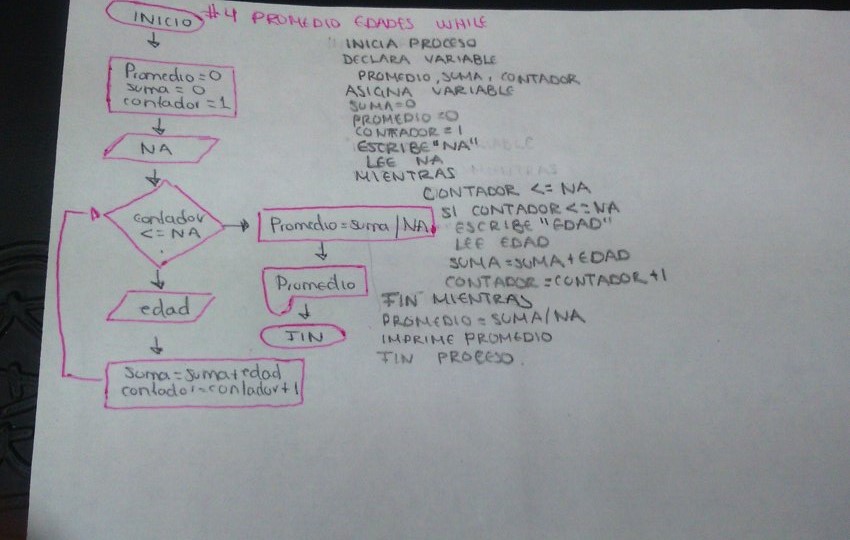 #4 PROMEDIO EDADES WHILE
INICIO
Promedio=0
suma=0
contador=1
NA
contador
<=NA
edad
suma=suma+edad
contador=contador+1
Promedio=suma/NA
Promedio
FIN
INICIA PROCESO
DECLARA VARIABLE
PROMEDIO, SUMA, CONTADOR
ASIGNA VARIABLE
SUMA=0
PROMEDIO=0
CONTADOR=1
ESCRIBE "NA"
LEE NA
MIENTRAS
CONTADOR <= NA
SI CONTADOR <= NA
ESCRIBE "EDAD"
LEE EDAD
SUMA=SUMA+EDAD
CONTADOR=CONTADOR+1
FIN MIENTRAS
PROMEDIO=SUMA/NA
IMPRIME PROMEDIO
FIN PROCESO.